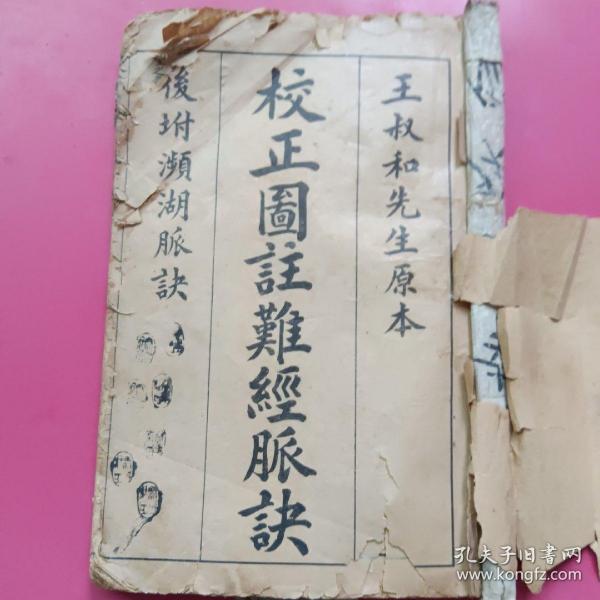 王叔和先生原本
校正圖註難經脈訣
後坿瀕湖脈訣
孔夫子旧書网
www.kongfz.com